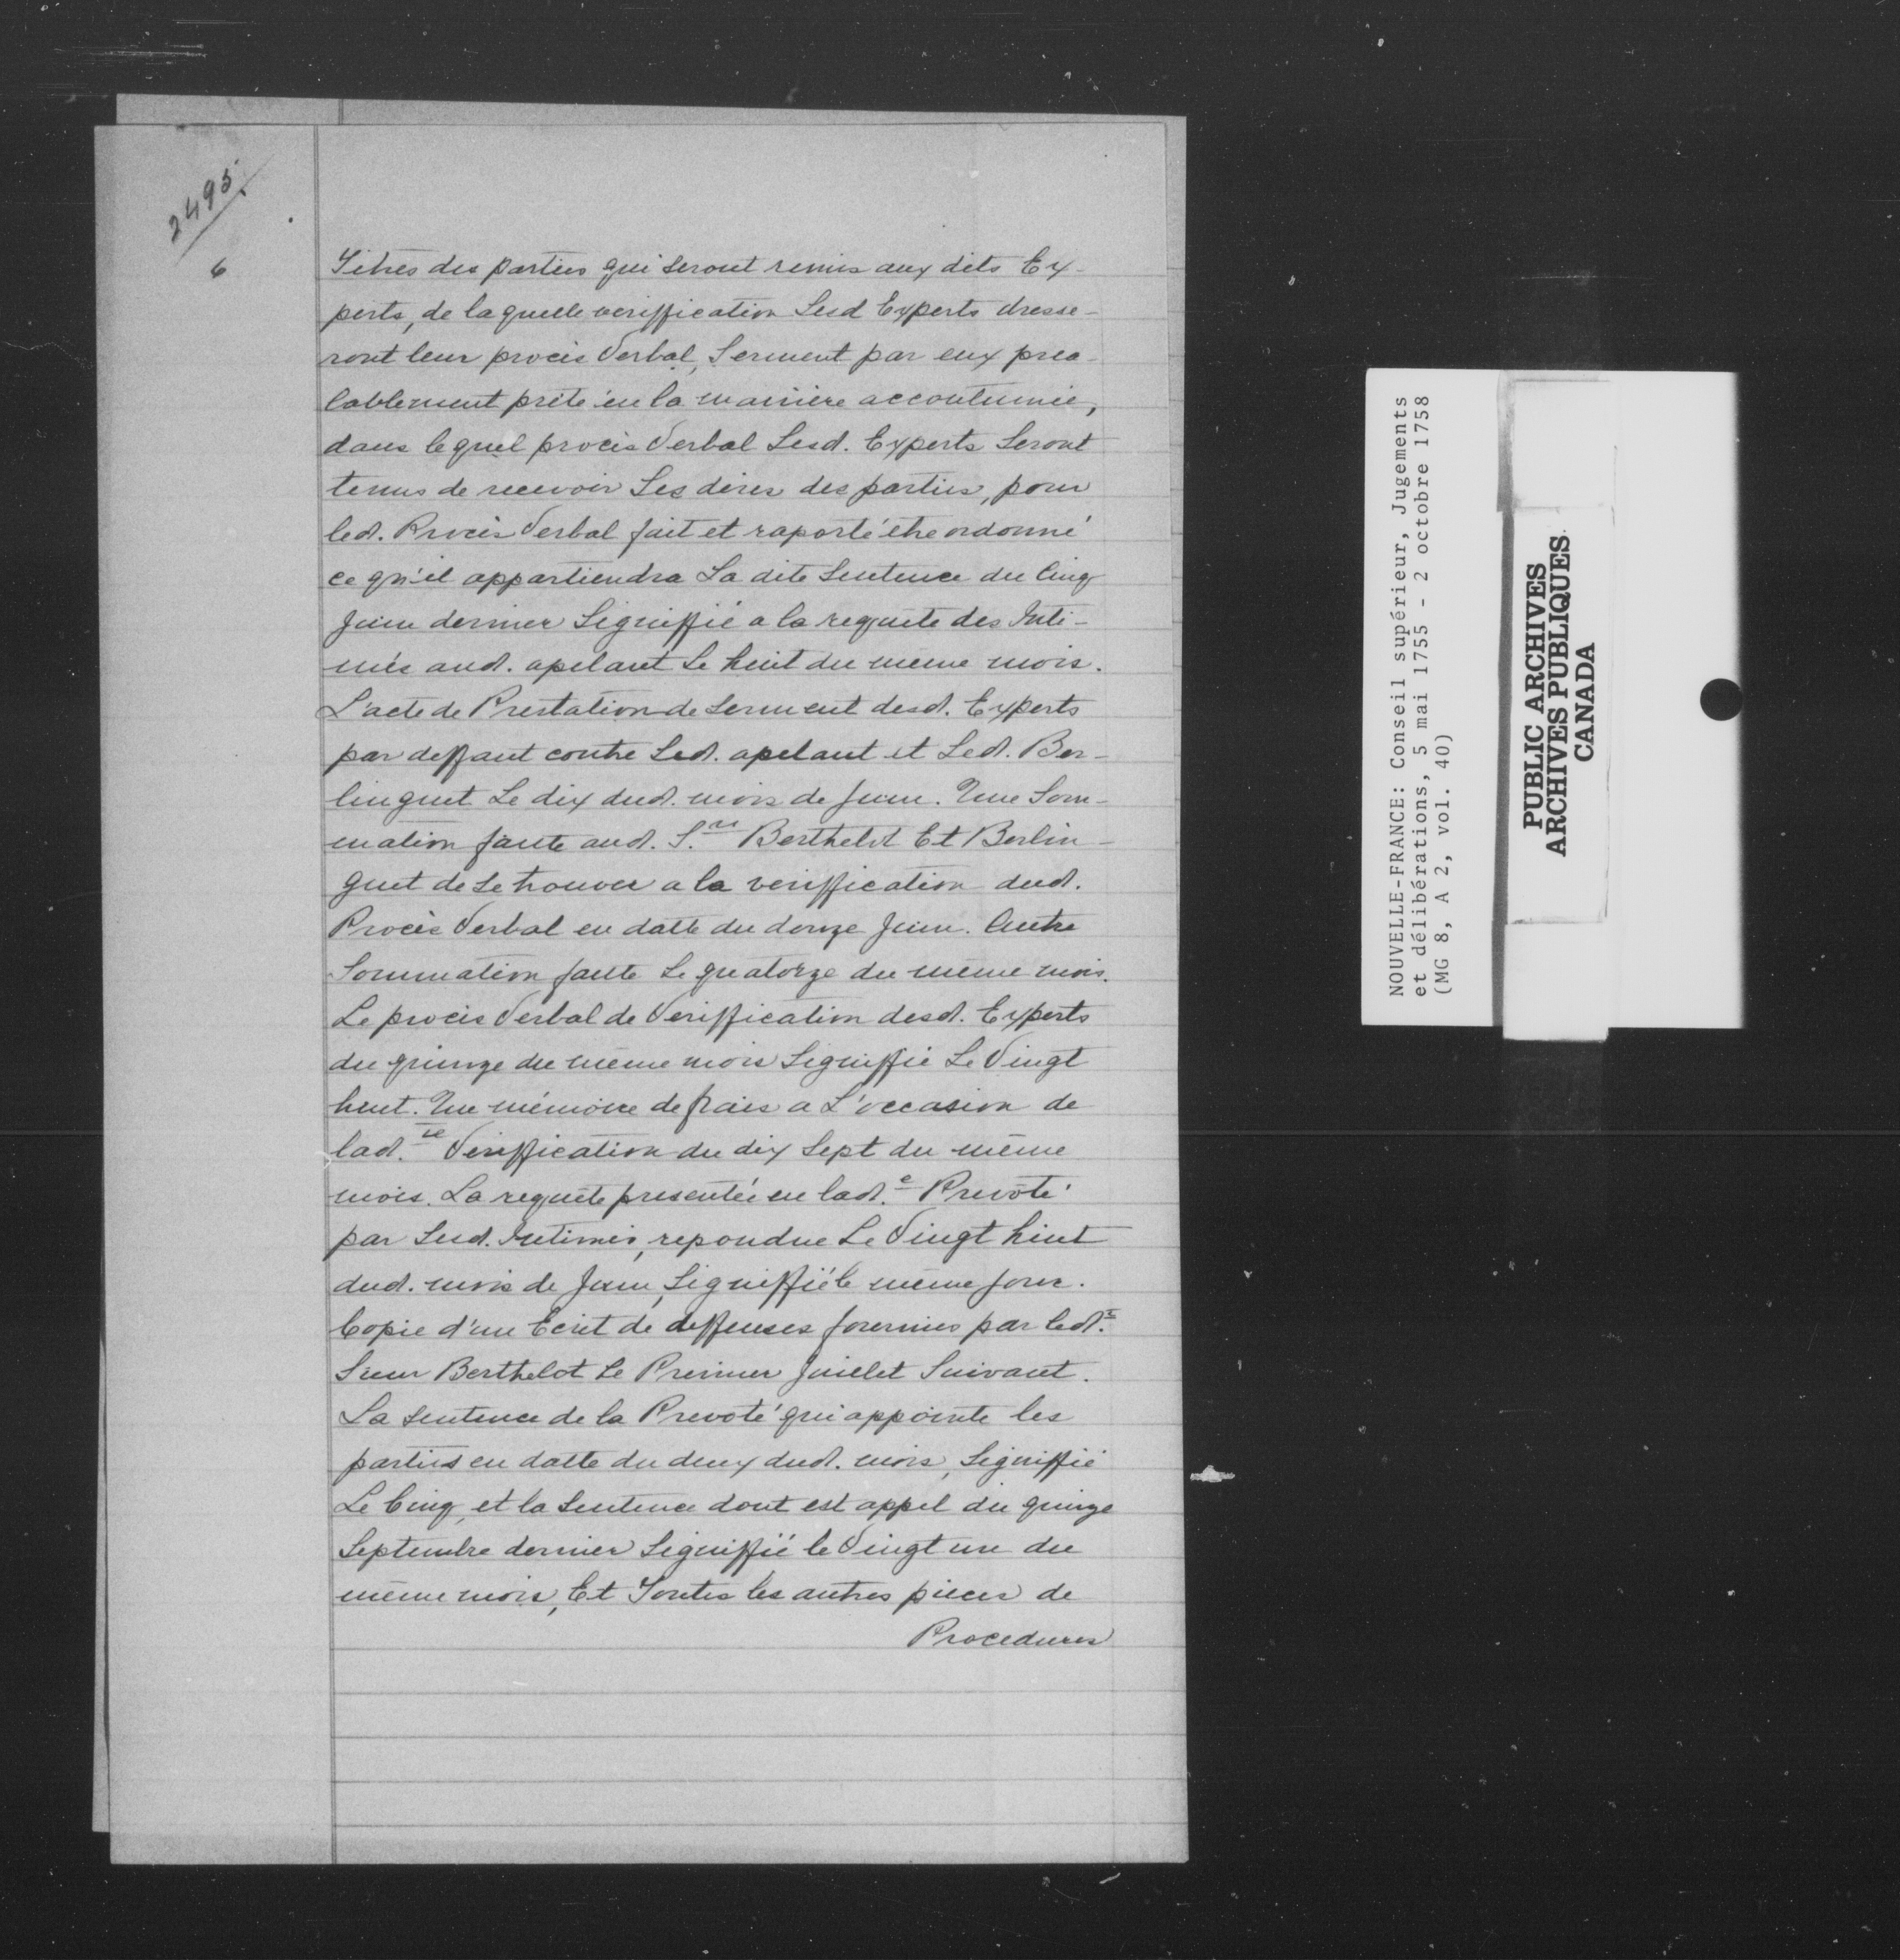 2495.
6
Titres des parties qui seront remis aux dits Ex-
perts, de laquelle veriffication Lesd Experts dresse-
ront leur procès Verbal, Serment par eux prea-
lablement prêté en la manière accoutumée,
dans lequel procès Verbal Lesd. Experts Seront
tenus de recevoir Les dires des parties, pour
led. Procès Verbal fait et raporté être ordonné
ce qu'il appartiendra La dite Sentence du Cinq
Juin dernier Signiffié a la requête des Inti-
més aud. apelant Le huit du même mois.
L'acte de Prestation de Serment desd. Experts
par deffaut contre Led. apelant et Led. Ber-
linguet Le dix dud. mois de Juin. Une Som-
mation faite aud. S.rs Berthelot Et Berlin-
guet de Se trouver a la veriffication dud.
Procès Verbal en datte du douze Juin. Autre
Sommation faite Le quatorze du même mois.
Le procès Verbal de Veriffication desd. Experts
du quinze du même mois Signiffié Le Vingt
huit. Un mémoire de frais a L'occasion de
lad.te Veriffication du dix Sept du même
mois. La requête presentée en lad.e Prevôté
par Lesd. Intimés, repondue Le Vingt huit
dud. mois de Juin, Signiffié le même jour.
Copie d'un Ecrit de deffenses fournies par led.t
Sieur Berthelot Le Premier Juillet Suivant.
La Sentence de la Prevoté qui appointe les
parties en datte du deux dud. mois, Signiffié
Le Cinq, et la Sentence dont est appel du quinze
Septembre dernier Signiffié le Vingt un du
même mois, Et Toutes les autres pièces de
Procedures
NOUVELLE-FRANCE: Conseil supérieur, Jugements
et délibérations, 5 mai 1755 - 2 octobre 1758
(MG 8, A 2, vol. 40)
PUBLIC ARCHIVES
ARCHIVES PUBLIQUES
CANADA